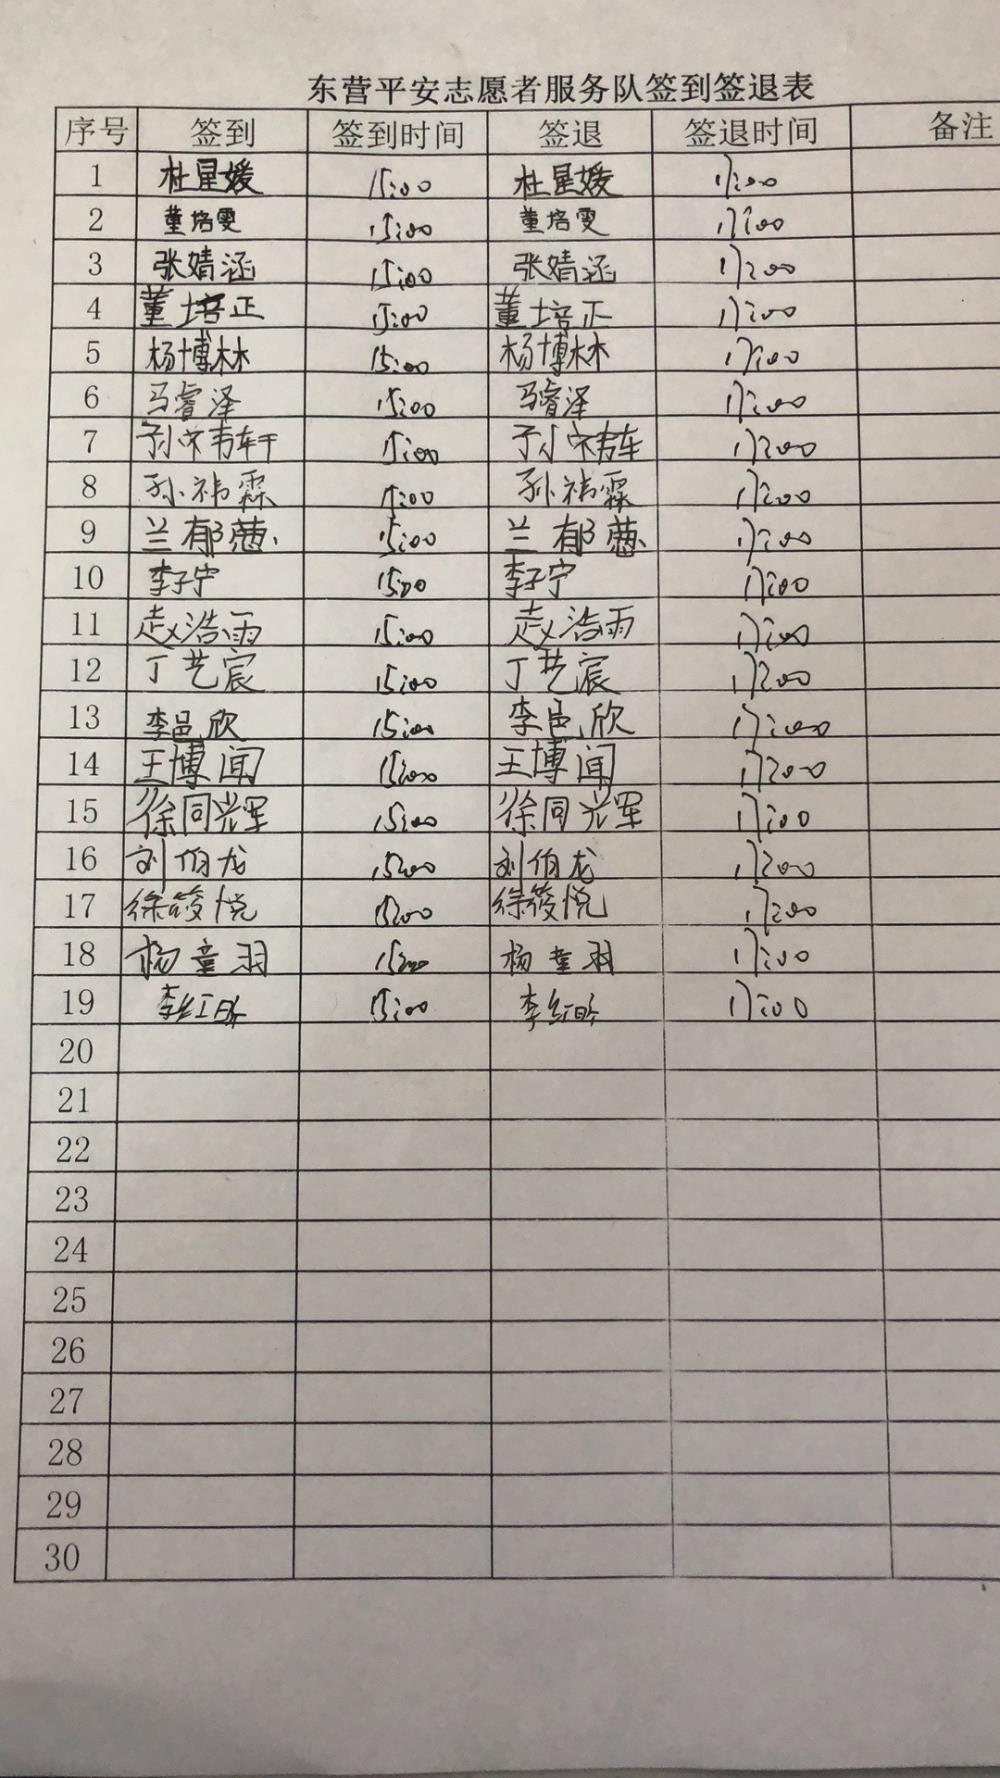 东营平安志愿者服务队签到签退表
序号 签到 签到时间 签退 签退时间 备注
1 杜星媛 15:00 杜星媛 17:00
2 董培雯 15:00 董培雯 17:00
3 张婧涵 15:00 张婧涵 17:00
4 董培正 15:00 董培正 17:00
5 杨博林 15:00 杨博林 17:00
6 马睿泽 15:00 马睿泽 17:00
7 15:00 17:00
8 孙祎霖 15:00 孙祎霖 17:00
9 兰郁蒽 15:00 兰郁蒽 17:00
10 李子宁 15:00 李子宁 17:00
11 赵浩雨 15:00 赵浩雨 17:00
12 丁艺宸 15:00 丁艺宸 17:00
13 李邑欣 15:00 李邑欣 17:00
14 王博闻 15:00 王博闻 17:00
15 徐同光军 15:00 徐同光军 17:00
16 刘伯龙 15:00 刘伯龙 17:00
17 徐筱悦 15:00 徐筱悦 17:00
18 杨童羽 15:00 杨童羽 17:00
19 李红昕 15:00 李红昕 17:00
20
21
22
23
24
25
26
27
28
29
30